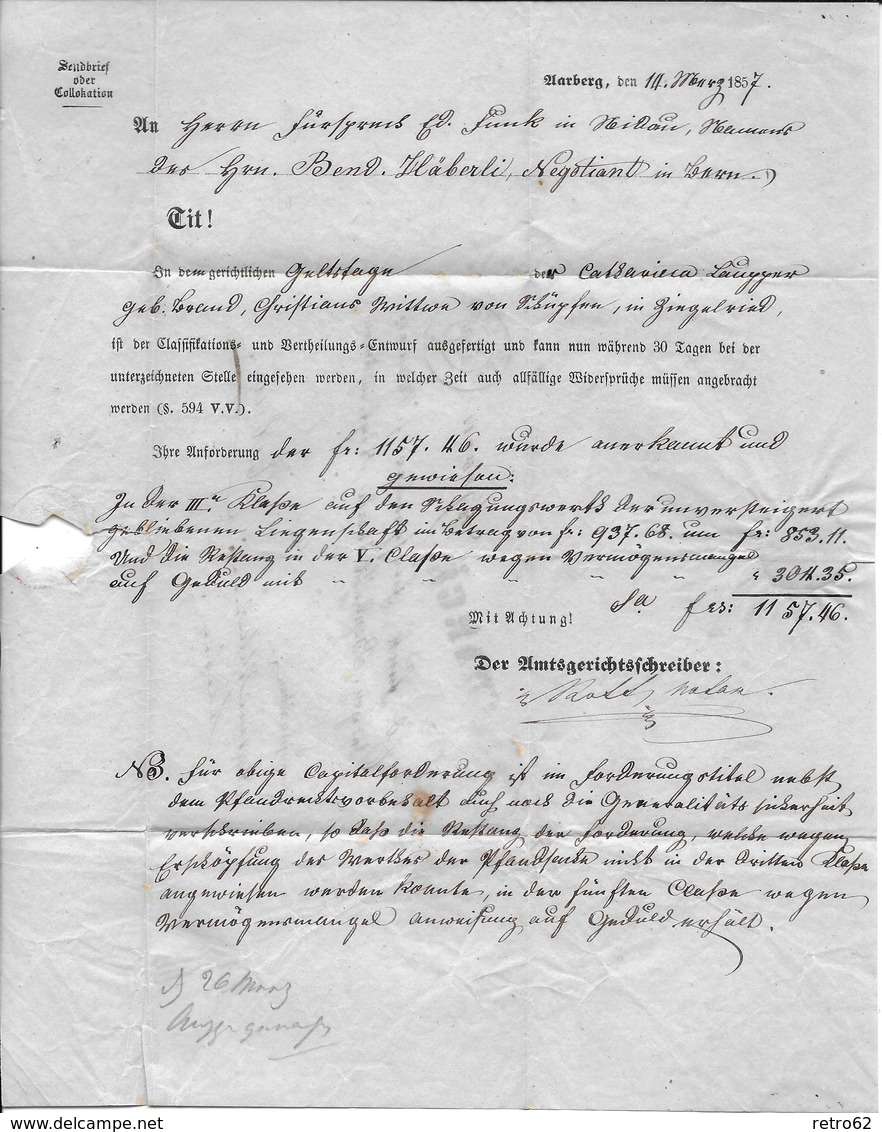 Sendbrief
oder
Collokation
Aarberg, den 14. Merz 1857.
An Herrn Fürsprech Ed. Funk in Nidau, Namens
des Hrn. Bend. Häberli, Negotiant in Bern.
Tit!
In dem gerichtlichen Geltstage der Catharina Laupper
geb. Brand, Christians Wittwe von Schüpfen, in Ziegelried,
ist der Classifikations- und Vertheilungs-Entwurf ausgefertigt und kann nun während 30 Tagen bei der
unterzeichneten Stelle eingesehen werden, in welcher Zeit auch allfällige Widersprüche müssen angebracht
werden (§. 594 V.V.).
Ihre Anforderung der fr: 1157. 46. wurde anerkannt und
gewiesen:
In der IIIn Klaße auf den Schazungswerth der unversteigert
gebliebenen Liegenschaft im Betrag von fr: 937. 68. um fr: 853. 11.
Und die Restanz in der V. Claße wegen Vermögensmangel
auf Geduld mit " " " " " " 304. 35.
Sa frs: 1157. 46.
Mit Achtung!
Der Amtsgerichtsschreiber:
Notar.
NB. Für obige Capitalforderung ist im Forderungstitel nebst
dem Pfandrechtsvorbehalt auch noch die Generalitätssicherheit
verschrieben, so daß die Restanz der Forderung, welche wegen
Erschöpfung des Werthes der Pfandsache nicht in der dritten Klaße
angewiesen werden konnte, in der fünften Claße wegen
Vermögensmangel Anweisung auf Geduld erhält.
26 Merz
delcampe.net
retro62